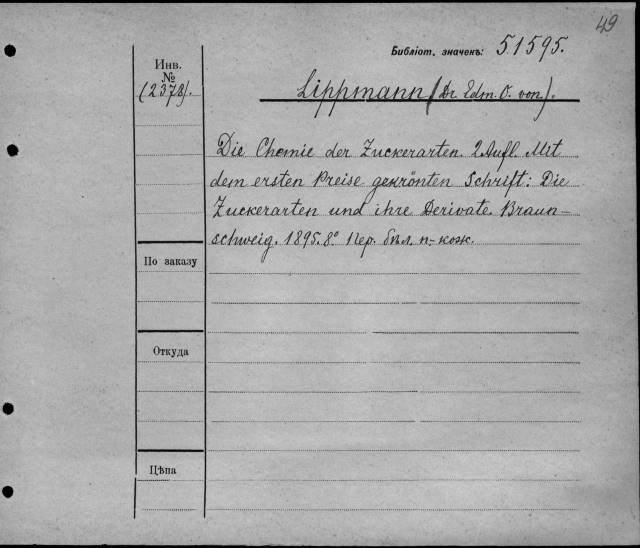 49
Библіот. значекъ: 51595.
Инв.
№
(2378).
Lippmann (Dr. Edm. O. von).
Die Chemie der Zuckerarten. 2 Aufl. Mit
dem ersten Preise gekrönten Schrift: Die
Zuckerarten und ihre Derivate. Braun-
schweig. 1895. 8° Пер. бѣл. п-кож.
По заказу
Откуда
Цѣна